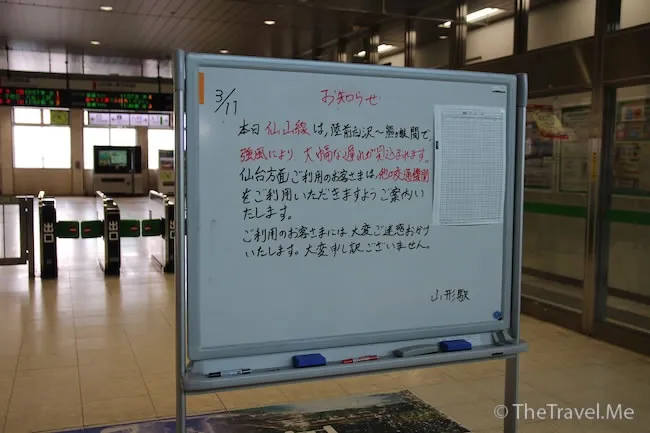 3/17
お知らせ
本日仙山線は、陸前白沢～熊ヶ根間で、
強風により大幅な遅れが見込まれます。
仙台方面ご利用のお客さまは、他の交通機関
をご利用いただきますようご案内い
たします。
ご利用のお客さまには大変ご迷惑おかけ
いたします。大変申し訳ございません。
山形駅
©TheTravel.Me